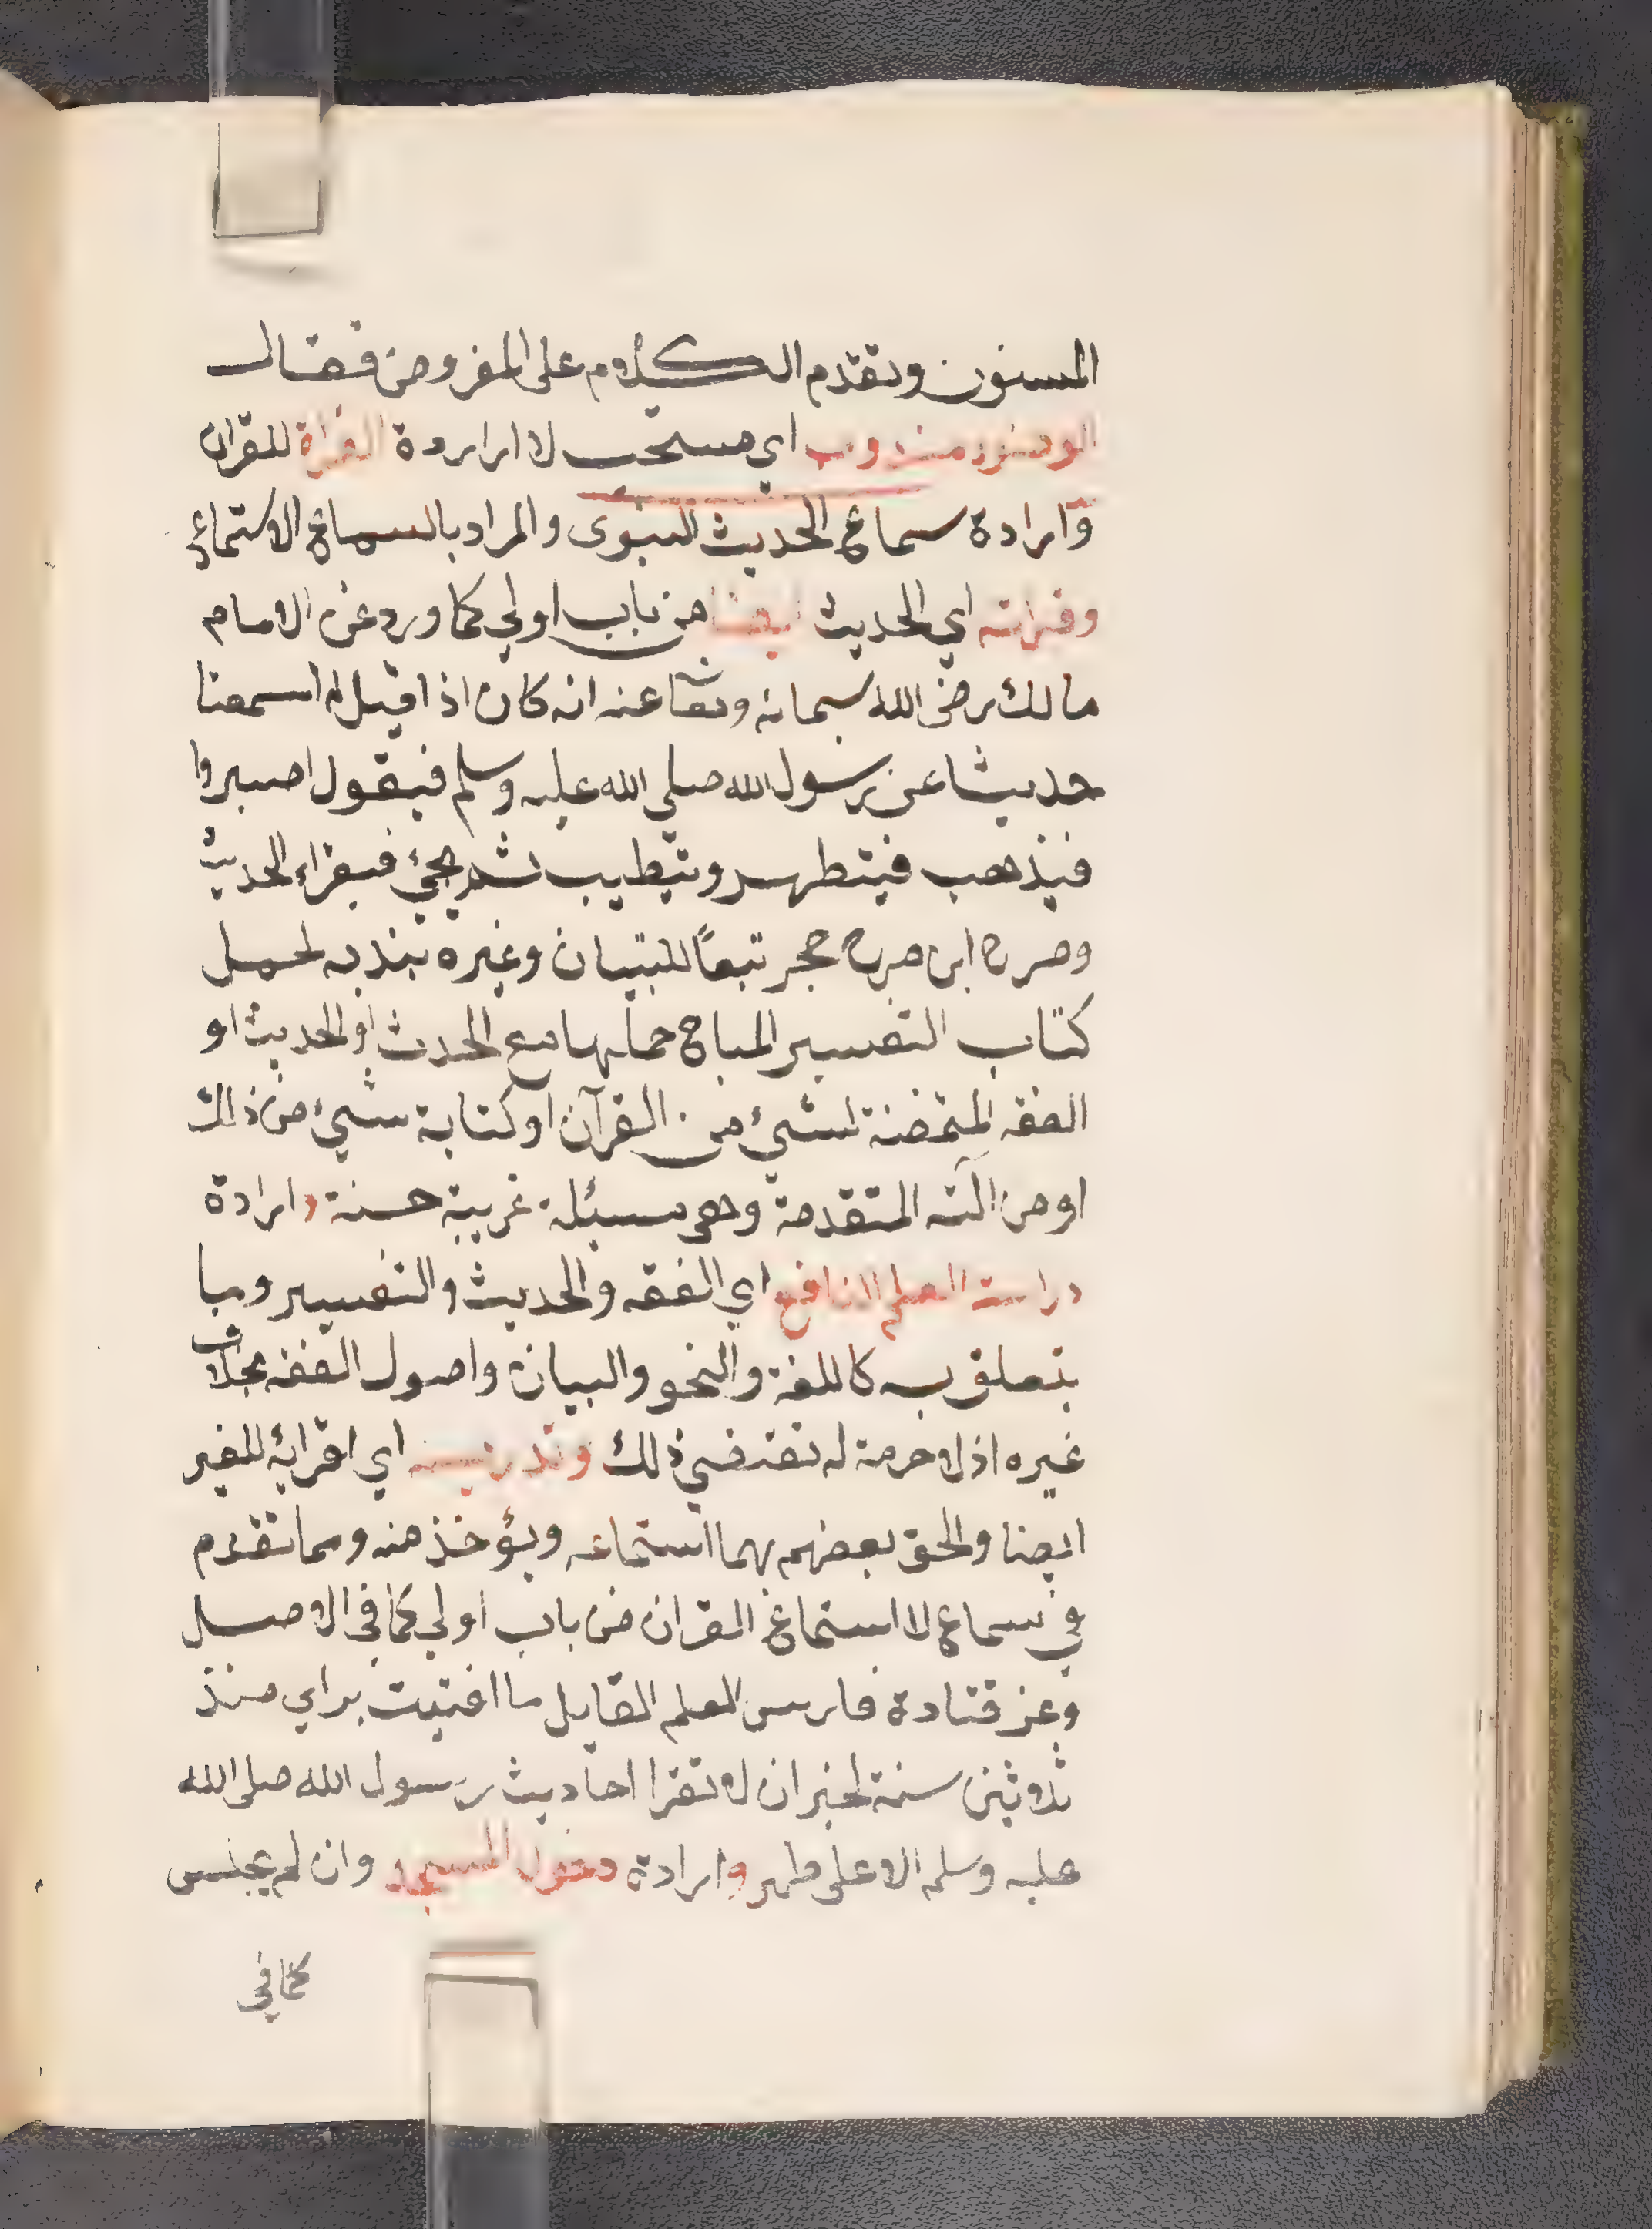 المسنون وتقدم الكلام على المفروض فقال
الوضوء مندوب اي مستحب لا ارارادة القراة للقران
وارادة سماع الحديث النبوى والمراد بالسماع الاستماع
وقراته اي الحديث ايضا من باب اولي كما ورد عن الامام
مالك رضى الله سبحانه وتعا عنه انه كان اذا قيل له اسمعنا
حديثا عن رسول الله صلى الله عليه وسلم فيقول اصبروا
فيذهب فيتطهر ويتطيب ثم يجئ فيقراء الحديث
وصرح ابن صرح حجر تبعًا للتبيان وغيره بندبه لحمل
كتاب التفسير المباح حملها مع الحدث او الحديث او
الفقه المتضمنة لشيء من القرآن او كتابة شيء من ذلك
او من آلته المتقدمة وهي مسئلة غريبة حسنة وارادة
دراسة العلم النافع اي الفقه والحديث والتفسير وما
يتعلق به كاللغة والنحو والبيان واصول الفقه بخلاف
غيره اذ لا حرمة له تقتضي ذلك وتدريسه اي اقرائه للغير
ايضا والحق بعضهم بهما استماعه ويؤخذ منه ومما تقدم
في سماع لا استماع القران من باب اولي كما في الاصل
وعن قتادة فارس العلم القايل ما افتيت براي منذ
ثلاثين سنة لخبر ان لا تقرا احاديث رسول الله صلى الله
عليه وسلم الا على طهر وارادة دخول المسجد وان لم يجلس
كما في